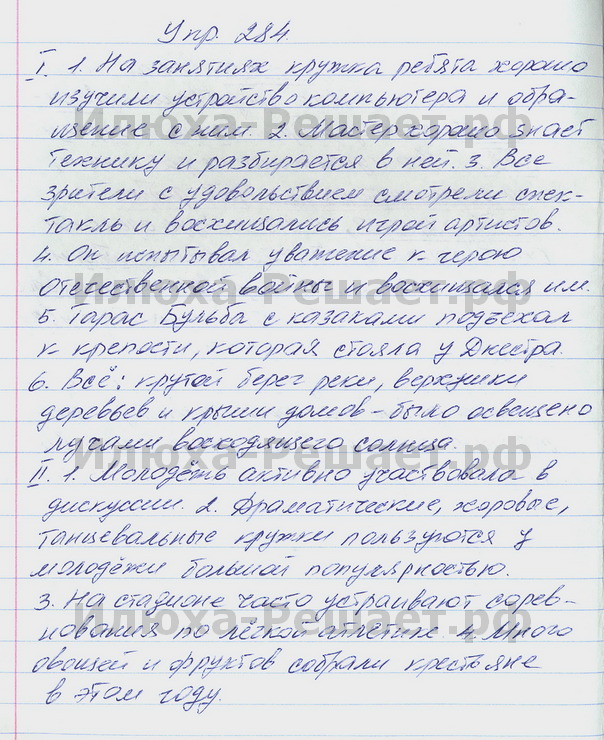 Упр. 284.
I. 1. На занятиях кружка ребята хорошо
изучили устройство компьютера и обра-
щение с ним 2. Мастер хорошо знает
технику и разбирается в ней. 3. Все
зрители с удовольствием смотрели спек-
такль и восхищались игрой артистов.
4. Он испытывал уважение к герою
Отечественной войны и восхищался им.
5. Тарас Бульба с казаками подъехал
к крепости, которая стояла у Днестра.
6. Всё: крутой берег реки, верхушки
деревьев и крыши домов – было освещено
лучами восходящего солнца.
II. 1. Молодёжь активно участвовала в
дискуссии. 2. Драматические, хоровые,
танцевальные кружки пользуются у
молодёжи большой популярностью.
3. На стадионе часто устраивают сорев-
нования по лёгкой атлетике 4. Много
овощей и фруктов собрали крестьяне
в этом году.
Илюха-Решает.рф
Илюха-Решает.рф
Илюха-Решает.рф
Илюха-Решает.рф
Илюха-Решает.рф